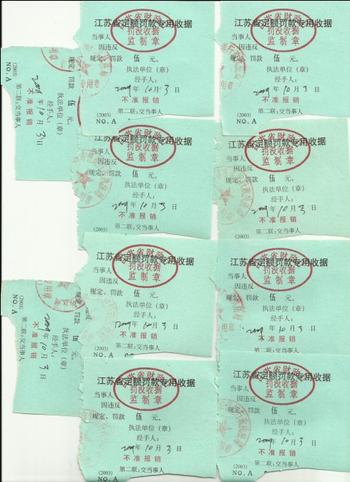 (2003)
NO. A
规定、罚款 伍 元。
执法单位(章)
经手人:
2009年10月3日
不准报销
第二联:交当事人
(2003)
NO. A
罚款 伍 元。
执法单位(章)
经手人:
2009年10月3日
不准报销
第二联:交当事人
江苏省定额罚款专用收据
罚没收据
监制章
当事人
因违反
规定、罚款 伍 元。
执法单位(章)
经手人:
2009年10月3日
不准报销
(2003) 第二联:交当事人
NO. A
江苏省定额罚款专用收据
罚没收据
监制章
当事人
因违反
规定、罚款 伍 元。
执法单位(章)
经手人:
2009年10月3日
不准报销
(2003) 第二联:交当事人
江苏省定额罚款专用收据
罚没收据
监制章
当事人
因违反
规定、罚款 伍 元。
执法单位(章)
经手人:
2009年10月3日
不准报销
(2003) 第二联:交当事人
NO. A
江苏省定额罚款专用收据
罚没收据
监制章
当事人
因违反
规定、罚款 伍 元。
执法单位(章)
经手人:
2009年10月3日
不准报销
(2003) 第二联:交当事人
江苏省定额罚款专用收据
罚没收据
监制章
当事人
因违反
规定、罚款 伍 元。
执法单位(章)
经手人:
2009年10月3日
不准报销
(2003) 第二联:交当事人
NO. A
江苏省定额罚款专用收据
罚没收据
监制章
当事人
因违反
规定、罚款 伍 元。
执法单位(章)
经手人:
2009年10月3日
不准报销
(2003) 第二联:交当事人
NO. A
江苏省定额罚款专用收据
罚没收据
监制章
当事人
因违反
规定、罚款 伍 元。
执法单位(章)
经手人:
2009年10月3日
不准报销
(2003) 第二联:交当事人
NO. A
江苏省定额罚款专用收据
罚没收据
监制章
当事人
因违反
规定、罚款 伍 元。
执法单位(章)
经手人:
2009年10月3日
不准报销
(2003) 第二联:交当事人
NO. A